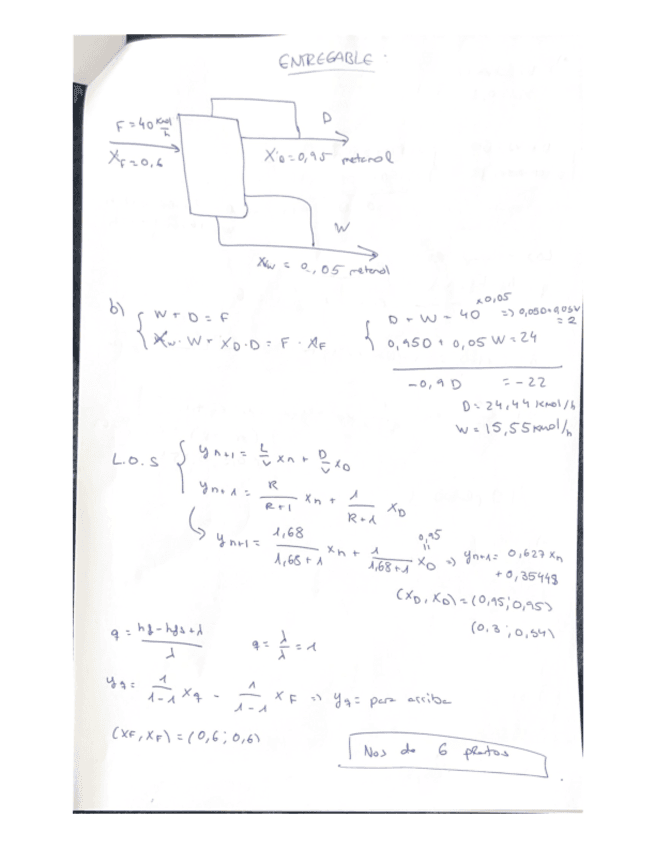 ENTREGABLE
F = 40 Kmol/h
X_F = 0,6
D
X_D = 0,95 metanol
W
X_W = 0,05 metanol
b) { W + D = F
X_W · W + X_D · D = F · X_F
{ D + W = 40 x0,05 => 0,05D + 0,05W = 2
0,95D + 0,05 W = 24
-0,9 D = -22
D = 24,44 Kmol/h
W = 15,55 Kmol/h
L.O.S { y_n+1 = L/V x_n + D/V x_D
y_n+1 = R/R+1 x_n + 1/R+1 x_D
↳ y_n+1 = 1,68/1,68+1 x_n + 1/1,68+1 x_D = 0,95 => y_n+1 = 0,627 x_n
+ 0,35448
(X_D, X_D) = (0,95; 0,95)
(0,3; 0,54)
q = hg - hfs + λ / λ q = λ/λ = 1
y_q = 1/1-1 x_q - 1/1-1 x_F => y_q = para arriba
(XF, XF) = (0,6; 0,6)
Nos da 6 platos